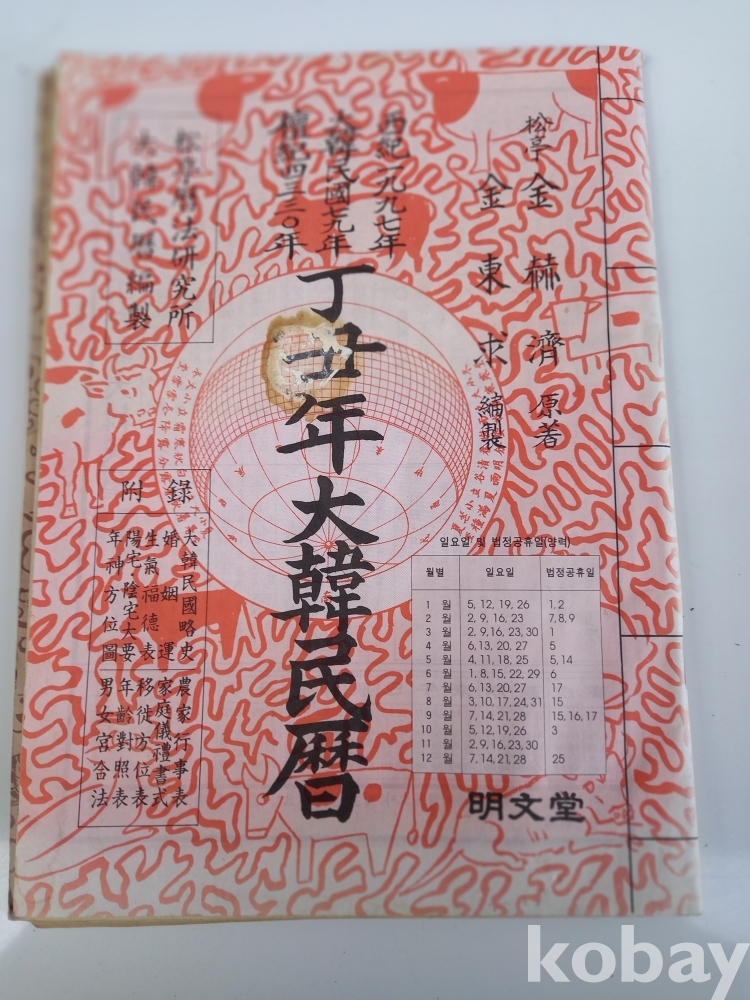 松亭 金赫濟 原著
金東求 編製
西紀一九九七年
大韓民國七九年
檀紀四三三０年
丁丑年大韓民曆
松亭曆法研究所
大韓民曆編製
附錄
大韓民國略史
婚姻運
生氣福德表
陽宅陰宅大要
年神方位圖
農家行事表
家庭儀禮書式
移徙方位表
年齡對照表
男女宮合法
일요일 및 법정공휴일(양력)
월별 일요일 법정공휴일
1 월 5, 12, 19, 26 1,2
2 월 2, 9, 16, 23 7,8,9
3 월 2, 9,16, 23, 30 1
4 월 6,13, 20, 27 5
5 월 4, 11, 18, 25 5, 14
6 월 1, 8, 15, 22, 29 6
7 월 6,13, 20, 27 17
8 월 3, 10, 17, 24, 31 15
9 월 7, 14, 21, 28 15, 16, 17
10 월 5, 12, 19, 26 3
11 월 2, 9, 16, 23, 30
12 월 7, 14, 21, 28 25
明文堂
kobay